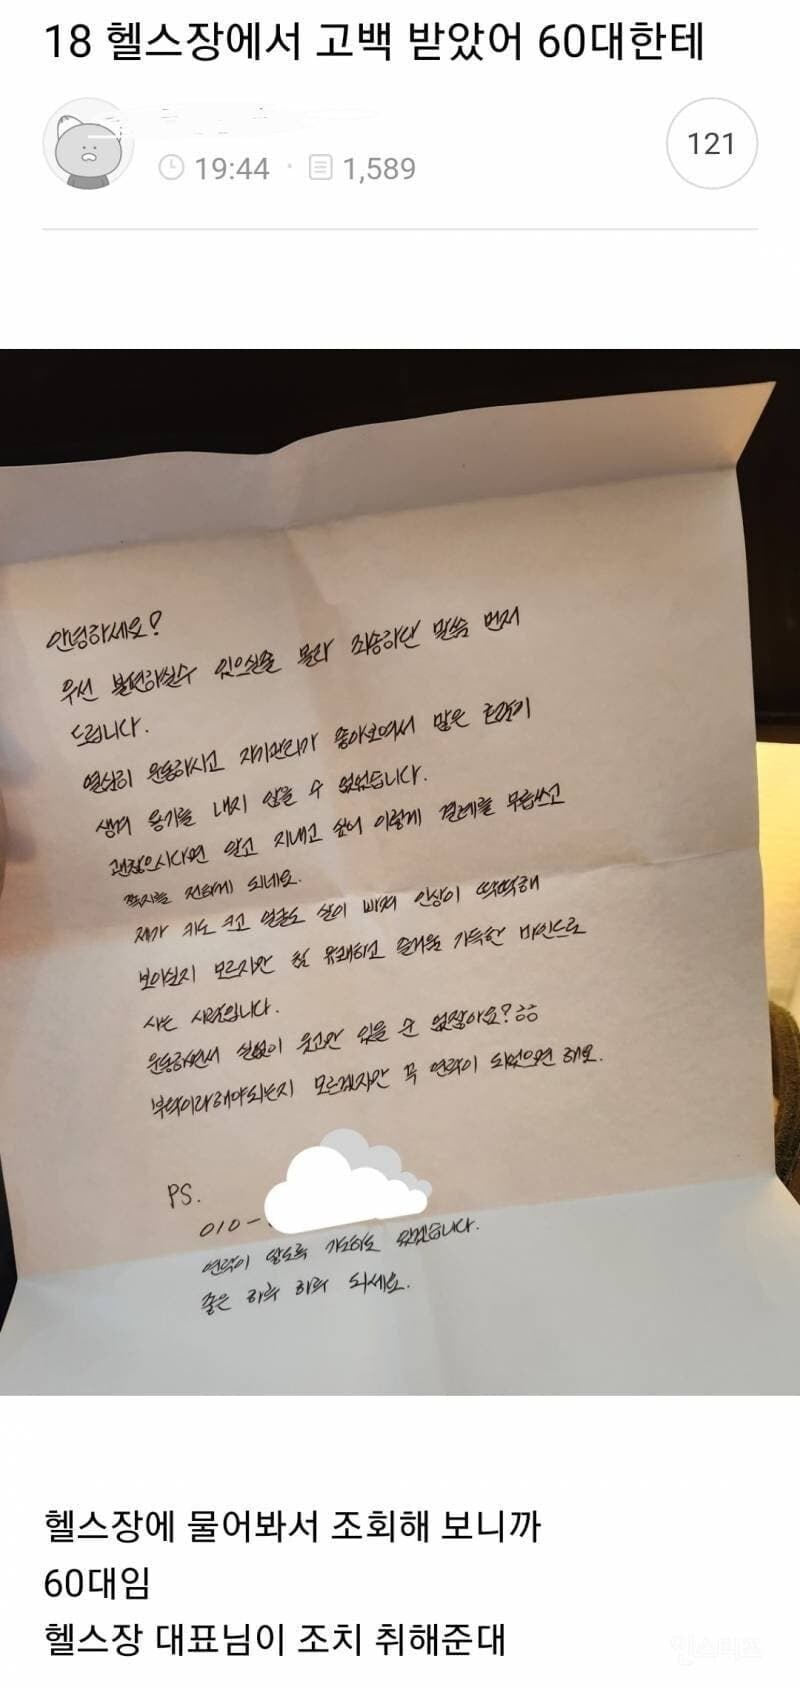 18 헬스장에서 고백 받았어 60대한테
19:44 · 1,589
121
안녕하세요?
우선 불편하실수 있으실줄 몰라 죄송하단 말씀 먼저
드립니다.
열심히 운동하시고 자기관리가 좋아보여서 많은 호감이
생겨 용기를 내지 않을 수 없었습니다.
괜찮으시다면 알고 지내고 싶어 이렇게 결례를 무릅쓰고
쪽지를 전하게 되네요.
제가 키도 크고 얼굴도 살이 빠져 인상이 딱딱해
보이실지 모르지만 참 유쾌하고 즐거움 가득한 마인드로
사는 사람입니다.
운동하면서 실없이 웃고만 있을 순 없잖아요? ㅎㅎ
부탁이라해야되는지 모르겠지만 꼭 연락이 되었으면 해요.
PS.
010-
연락이 않도록 기도하도 있겠습니다.
좋은 하루 하루 되세요.
헬스장에 물어봐서 조회해 보니까
60대임
헬스장 대표님이 조치 취해준대
인스티즈